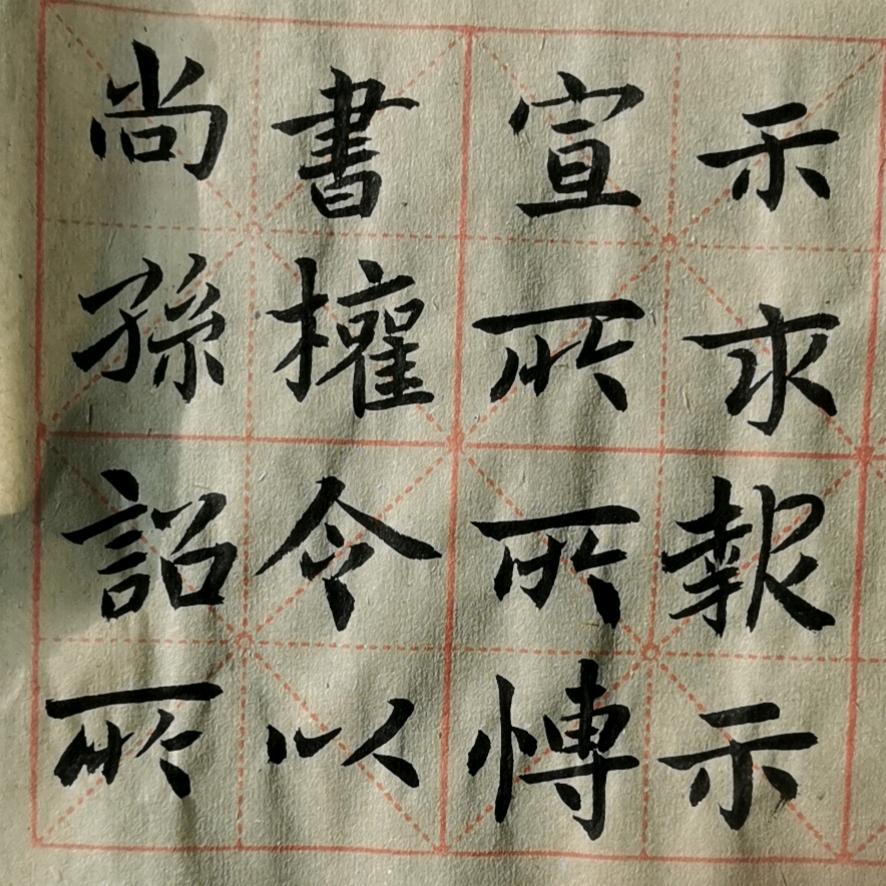 尚書宣示
孫權所求
詔令所報
所以愽示